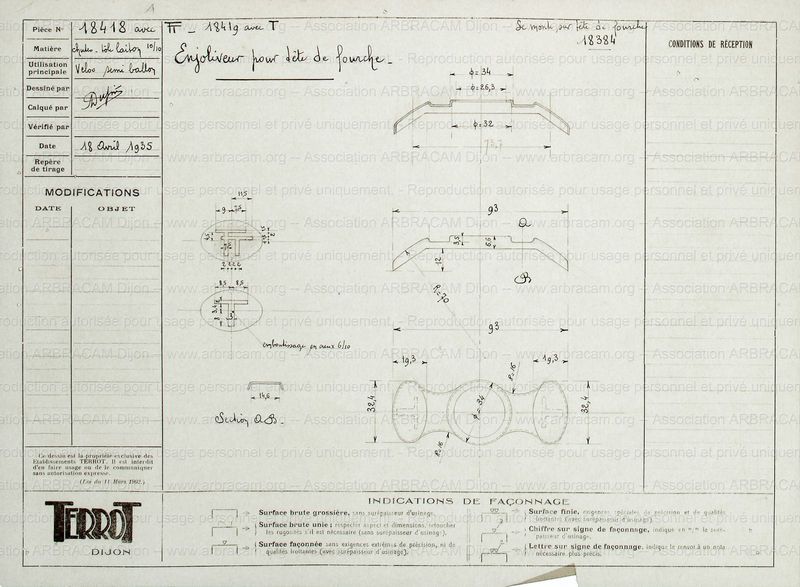 Pièce N° 18418 avec TT – 18419 avec T
Se monte sur tête de fourche
18384
Matière
tôle laiton 10/10
Enjoliveur pour tête de fourche
Utilisation principale
Vélos semi ballon
CONDITIONS DE RÉCEPTION
Dessiné par
Calqué par
Vérifié par
Date 18 Avril 1935
Repère de tirage
MODIFICATIONS
DATE OBJET
ϕ = 34
ϕ = 26,3
ϕ = 32
93
A
3,5
6,6
12
B
R = 70
93
19,3
19,3
R = 16
32,4
ϕ = 34
32,4
R = 16
11,5
9
7,5
2 2 2 2
8,5 8,5
emboutissage en creux 6/10
14,6
Section A B
Ce dessin est la propriété exclusive des
Etablissements TERROT. Il est interdit
d'en faire usage ou de le communiquer
sans autorisation expresse.
(Loi du 11 Mars 1902.)
TERROT
DIJON
INDICATIONS DE FAÇONNAGE
Surface brute grossière, sans surépaisseur d'usinage.
Surface brute unie ; respecter aspect et dimensions, retoucher
les rugosités s'il est nécessaire (sans surépaisseur d'usinage).
Surface façonnée sans exigences extrêmes de précision, ni de
qualités frottantes (avec surépaisseur d'usinage).
Surface finie, exigences spéciales de précision et de qualités
frottantes (avec surépaisseur d'usinage).
Chiffre sur signe de façonnage, indique en "/" la surépaisseur d'usinage.
Lettre sur signe de façonnage, indique le renvoi à un nota
nécessaire plus précis.
www.arbracam.org – Association ARBRACAM Dijon – Reproduction autorisée pour usage personnel et privé uniquement.